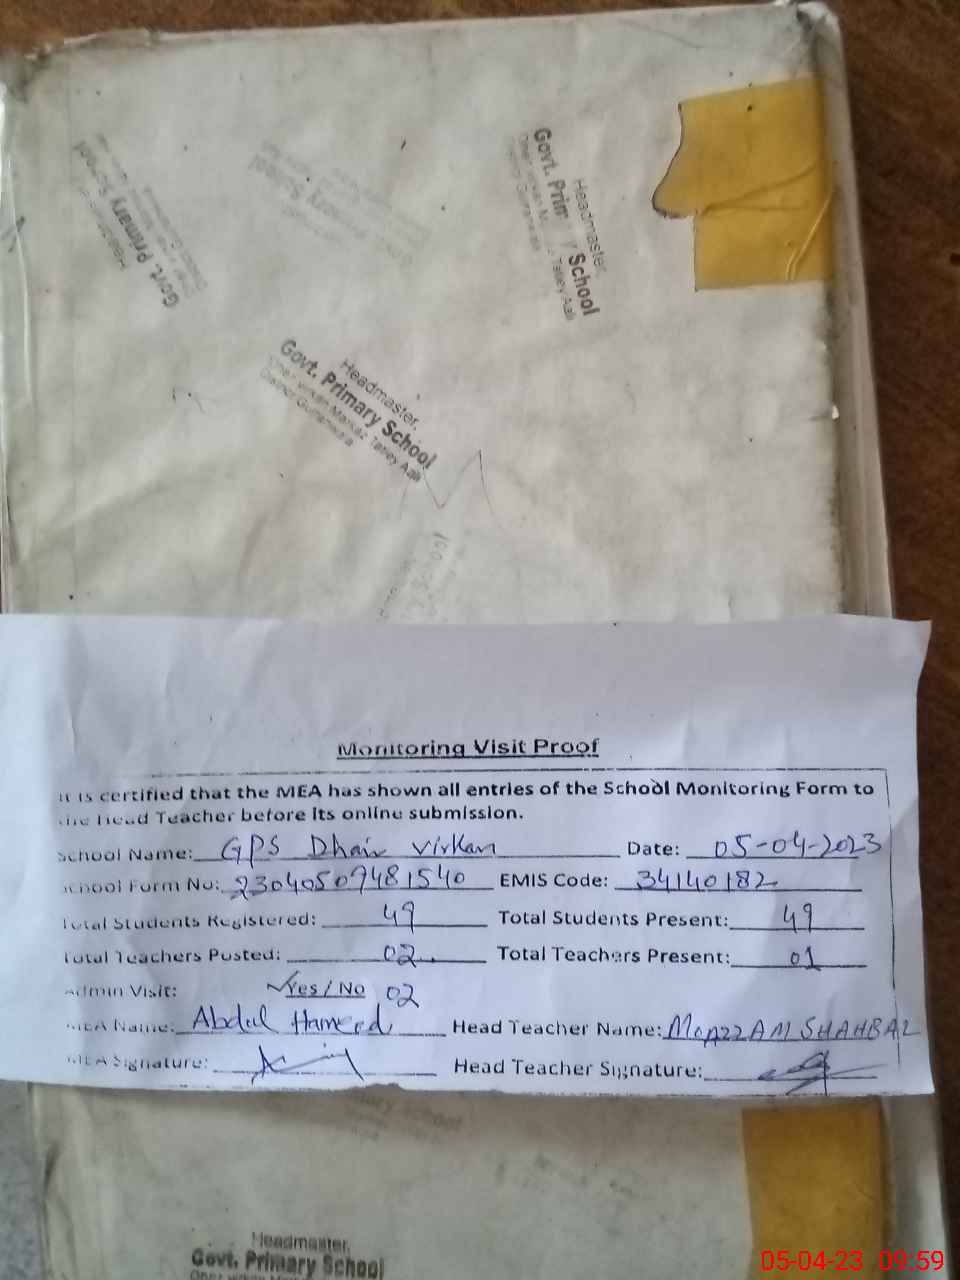 Headmaster,
Govt. Primary School
Headmaster,
Govt. Primary School
Headmaster,
Govt. Primary School
Markaz Tatley Aali
District Gujranwala
Monitoring Visit Proof
It is certified that the MEA has shown all entries of the School Monitoring Form to
the Head Teacher before its online submission.
School Name: GPS Dhair Virkan Date: 05-04-2023
School Form No: 23040509481540 EMIS Code: 34140182
Total Students Registered: 49 Total Students Present: 49
Total Teachers Posted: 02 Total Teachers Present: 01
Admin Visit: Yes / No 02
MEA Name: Abdul Hameed Head Teacher Name: MOAZZAM SHAHBAZ
MEA Signature: Head Teacher Signature:
Headmaster,
Govt. Primary School
05-04-23 09:59